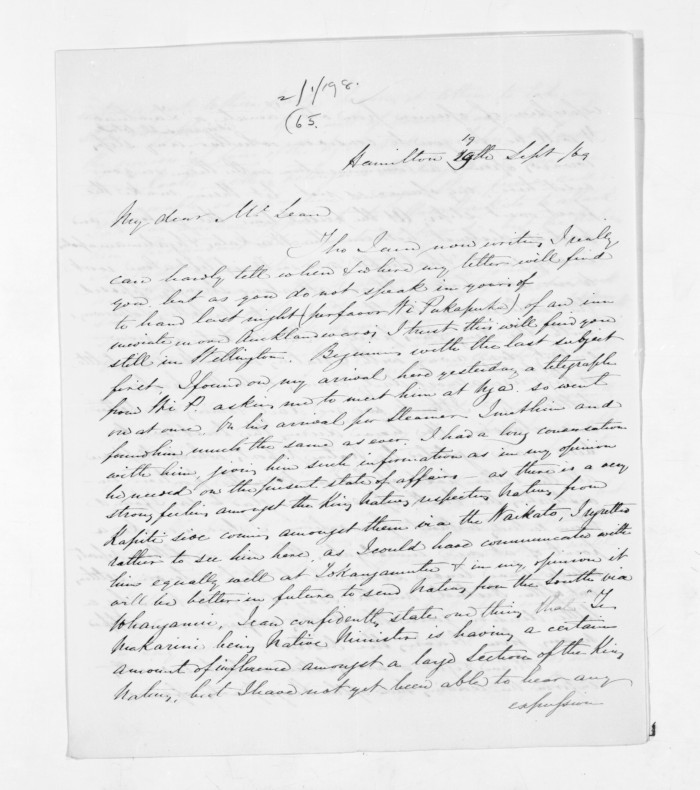 2/1/198.
(65.
Hamilton 19th Sept /69
My dear McLean
Tho I am now writing I really
can hardly tell when & where my letter will find
you, but as you do not speak in yours of
to hand last night (per favor Wi Pukapuka) of an im
mediate move Aucklandwards, I trust this will find you
still in Wellington. Beginning with the last subject
first, I found on my arrival here yesterday a telegraph
from Wi P. asking me to meet him at Nga. so went
on at once. On his arrival per Steamer I met him and
found him much the same as ever. I had a long conversation
with him, giving him such information as in my opinion
he needed on the present state of affairs – as there is a very
strong feeling amongst the King Natives respecting Natives from
Kapiti side coming amongst them via the Waikato, I regretted
rather to see him here, as I could have communicated with
him equally well at Tokangamutu & in my opinion it
will be better in future to send Natives from the South via
Whanganui, I can confidently state one thing that Te
Makarini being Native Minister is having a certain
amount of influence amongst a large section of the King
Natives, but I have not yet been able to hear any
expression